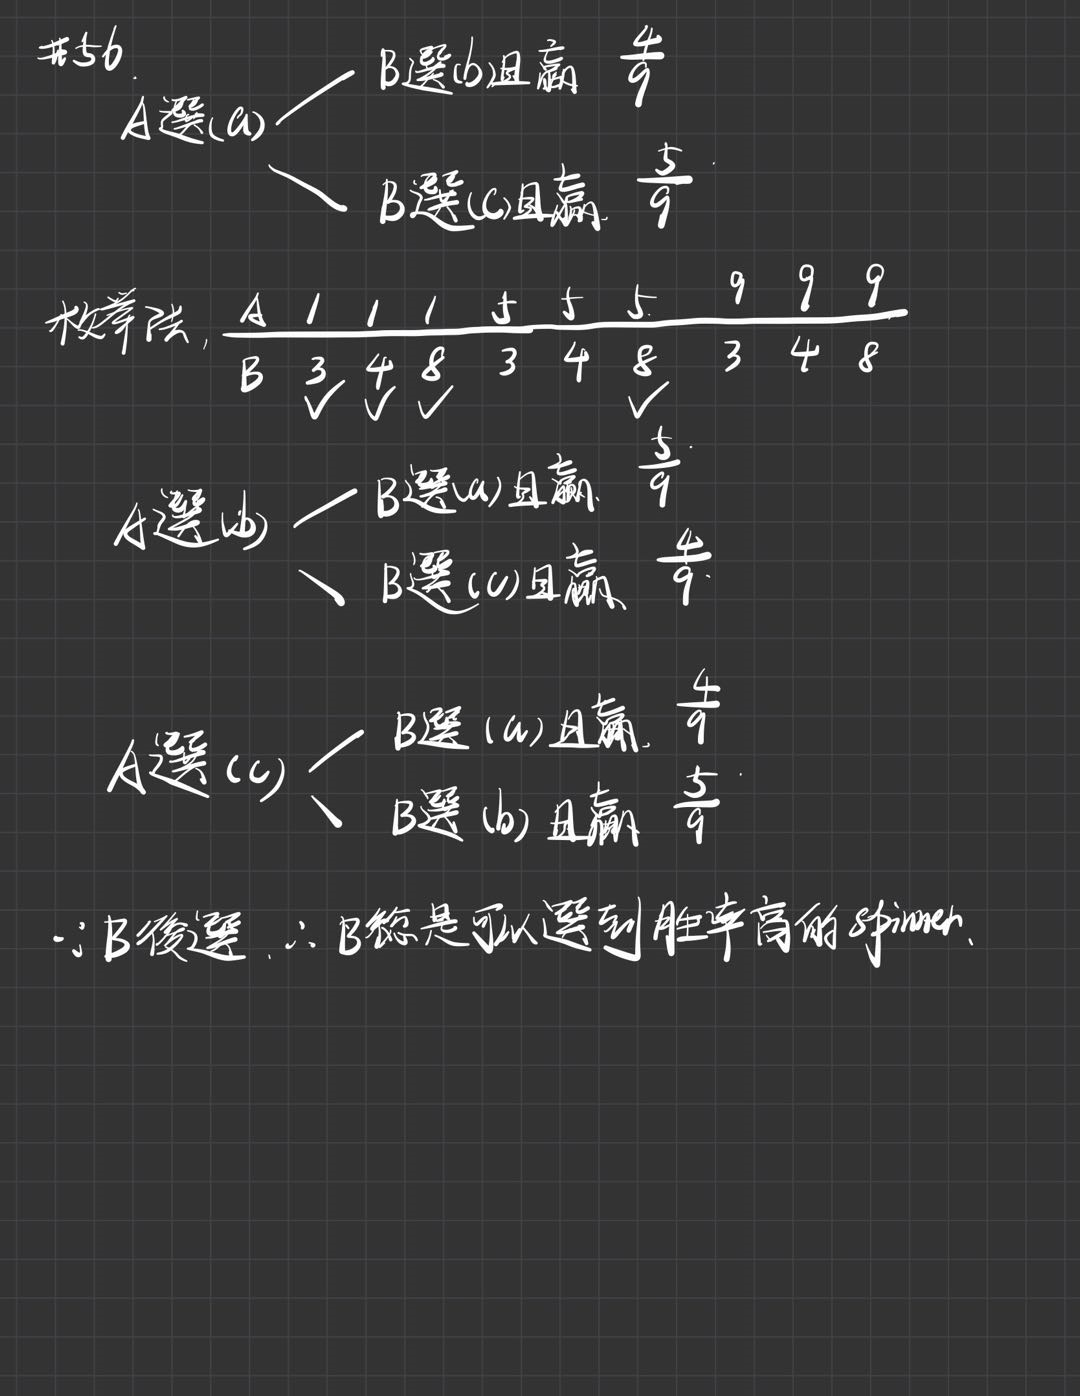 #56.
A選(a)
B選(b)且贏 4/9
B選(c)且贏. 5/9
枚舉法, A 1 1 1 5 5 5. 9 9 9
B 3 4 8 3 4 8 3 4 8
✓ ✓ ✓ ✓
A選(b)
B選(a)且贏. 5/9
B選(c)且贏. 4/9.
A選(c)
B選(a)且贏. 4/9
B選(b)且贏 5/9
∵B後選. ∴B總是可以選到胜率高的spinner.